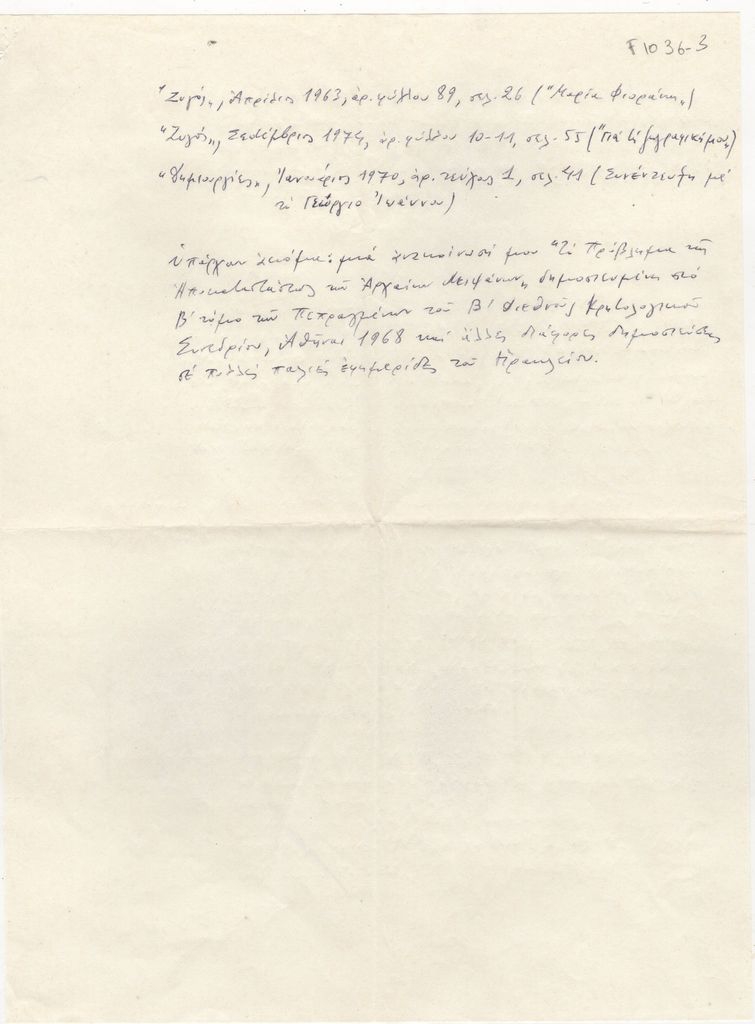 F1036-3
"Ζυγός", Ἀπρίλιος 1963, ἀρ. φύλλου 89, σελ. 26 ("Μαρία Φιοράκη")
"Ζυγός", Σεπτέμβριος 1974, ἀρ. φύλλου 10-11, σελ. 55 ("Γιά τή ζωγραφική μου")
"Δημιουργίες", Ἰανουάριος 1970, ἀρ. τεύχους 1, σελ. 41 (Συνέντευξη μέ
τό Γεώργιο Ἰωάννου)
Ὑπάρχουν ἀκόμα: μιά ἀνακοίνωσή μου "Τό Πρόβλημα τῆς
Ἀποκαταστάσεως τῶν Ἀρχαίων Λειψάνων", δημοσιευμένη στό
Β' τόμο τῶν Πεπραγμένων τοῦ Β' Διεθνοῦς Κρητολογικοῦ
Συνεδρίου, Ἀθῆναι 1968 καί ἄλλες διάφορες δημοσιεύσεις
σέ πολλές παλιές ἐφημερίδες τοῦ Ἡρακλείου.